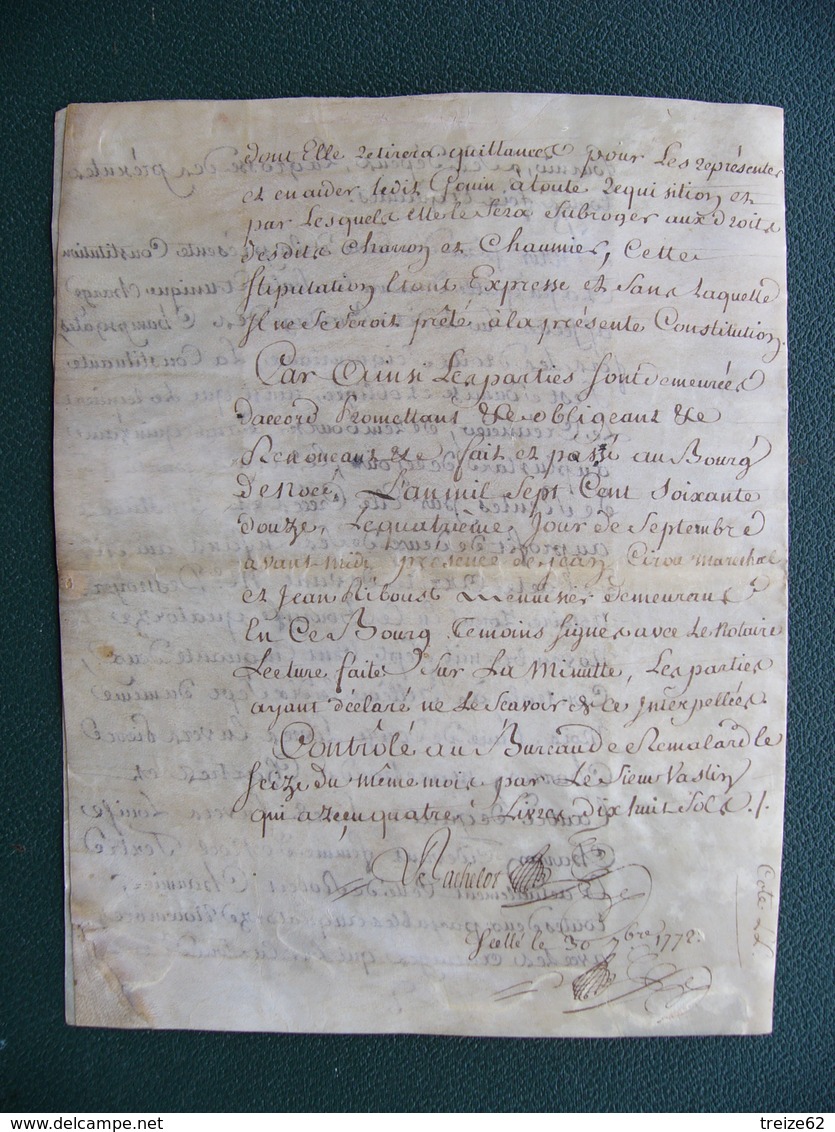 dont Elle retirera quittances pour Les représenter
et en aider ledit Gouin, a toute Requisition et
par Lesquels elle le fera Subroger aux droits
desdits Charron et Chaumier, Cette
Stipulation Etant Expresse et Sans Laquelle
Il ne Se Seroit prêté à la présente Constitution.
Car Ainsi Les parties Sont demeurées
d'accord Promettant &c obligeant &c
Renonceant &c fait et passé au Bourg
de Nocé, L'an mil Sept Cent Soixante
douze, Le quatrième Jour de Septembre
avant midi présence de jean Cirou marechal
et Jean Riboust Menuisier demeurans
En Ce Bourg Temoins Signés avec Le Notaire
Lecture faite Sur La Minutte, Les parties
ayant déclaré ne Le Scavoir de ce Interpellées
Contrôlé au Bureau de Remalard le
Seize du même mois par Le Sieur Vastin
qui a reçu quatre Livres dix huit Sols ./.
Le Rachelot
Scellé le 30 7bre 1772.
Cote LL.
delcampe.net
treize62